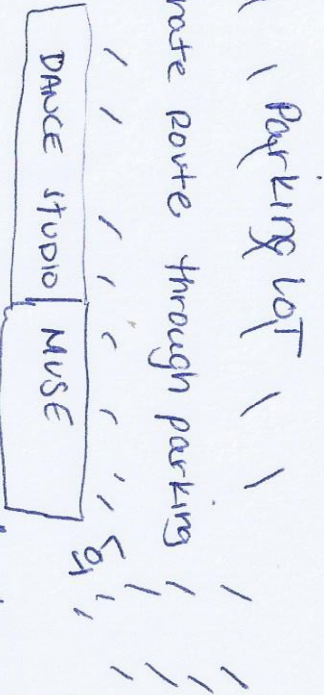 Parking LOT
rate Route through parking
Lot
DANCE STUDIO
MUSE